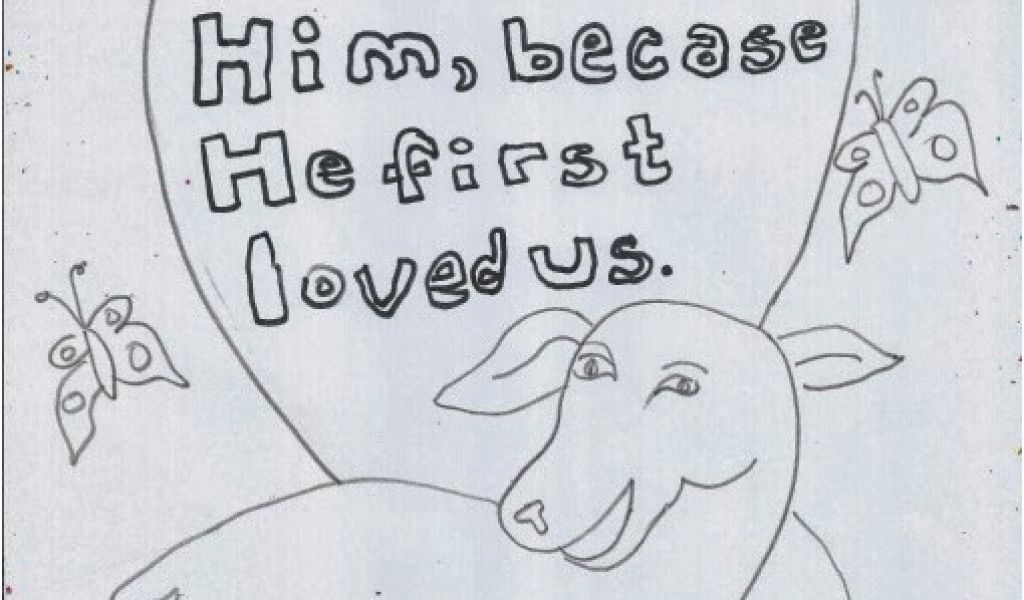 Him, becase
He first
loved us.